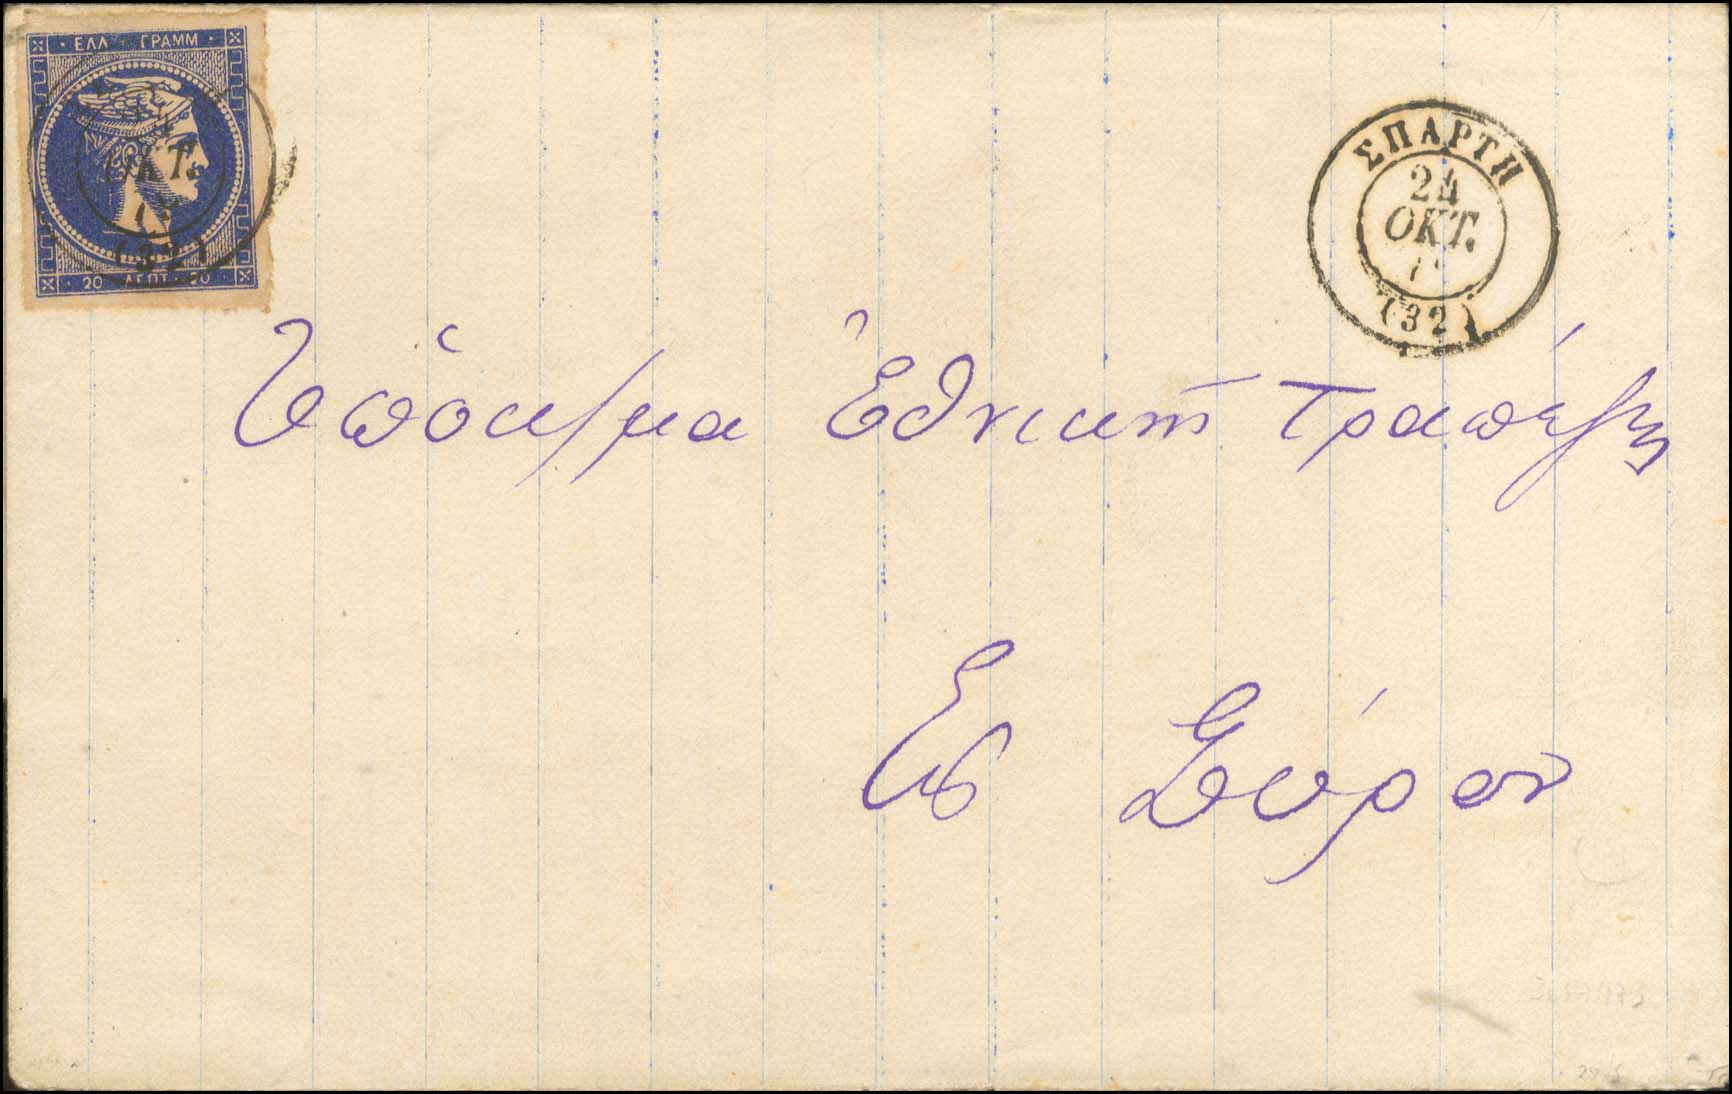 ΕΛΛ ΓΡΑΜΜ
20 ΛΕΠΤ 20
ΟΚΤ.
(32)
ΣΠΑΡΤΗ
24
ΟΚΤ.
(32)
Ὑπόκ/μα Ἐθνικῆς Τραπέζης
Εἰς Σύρον